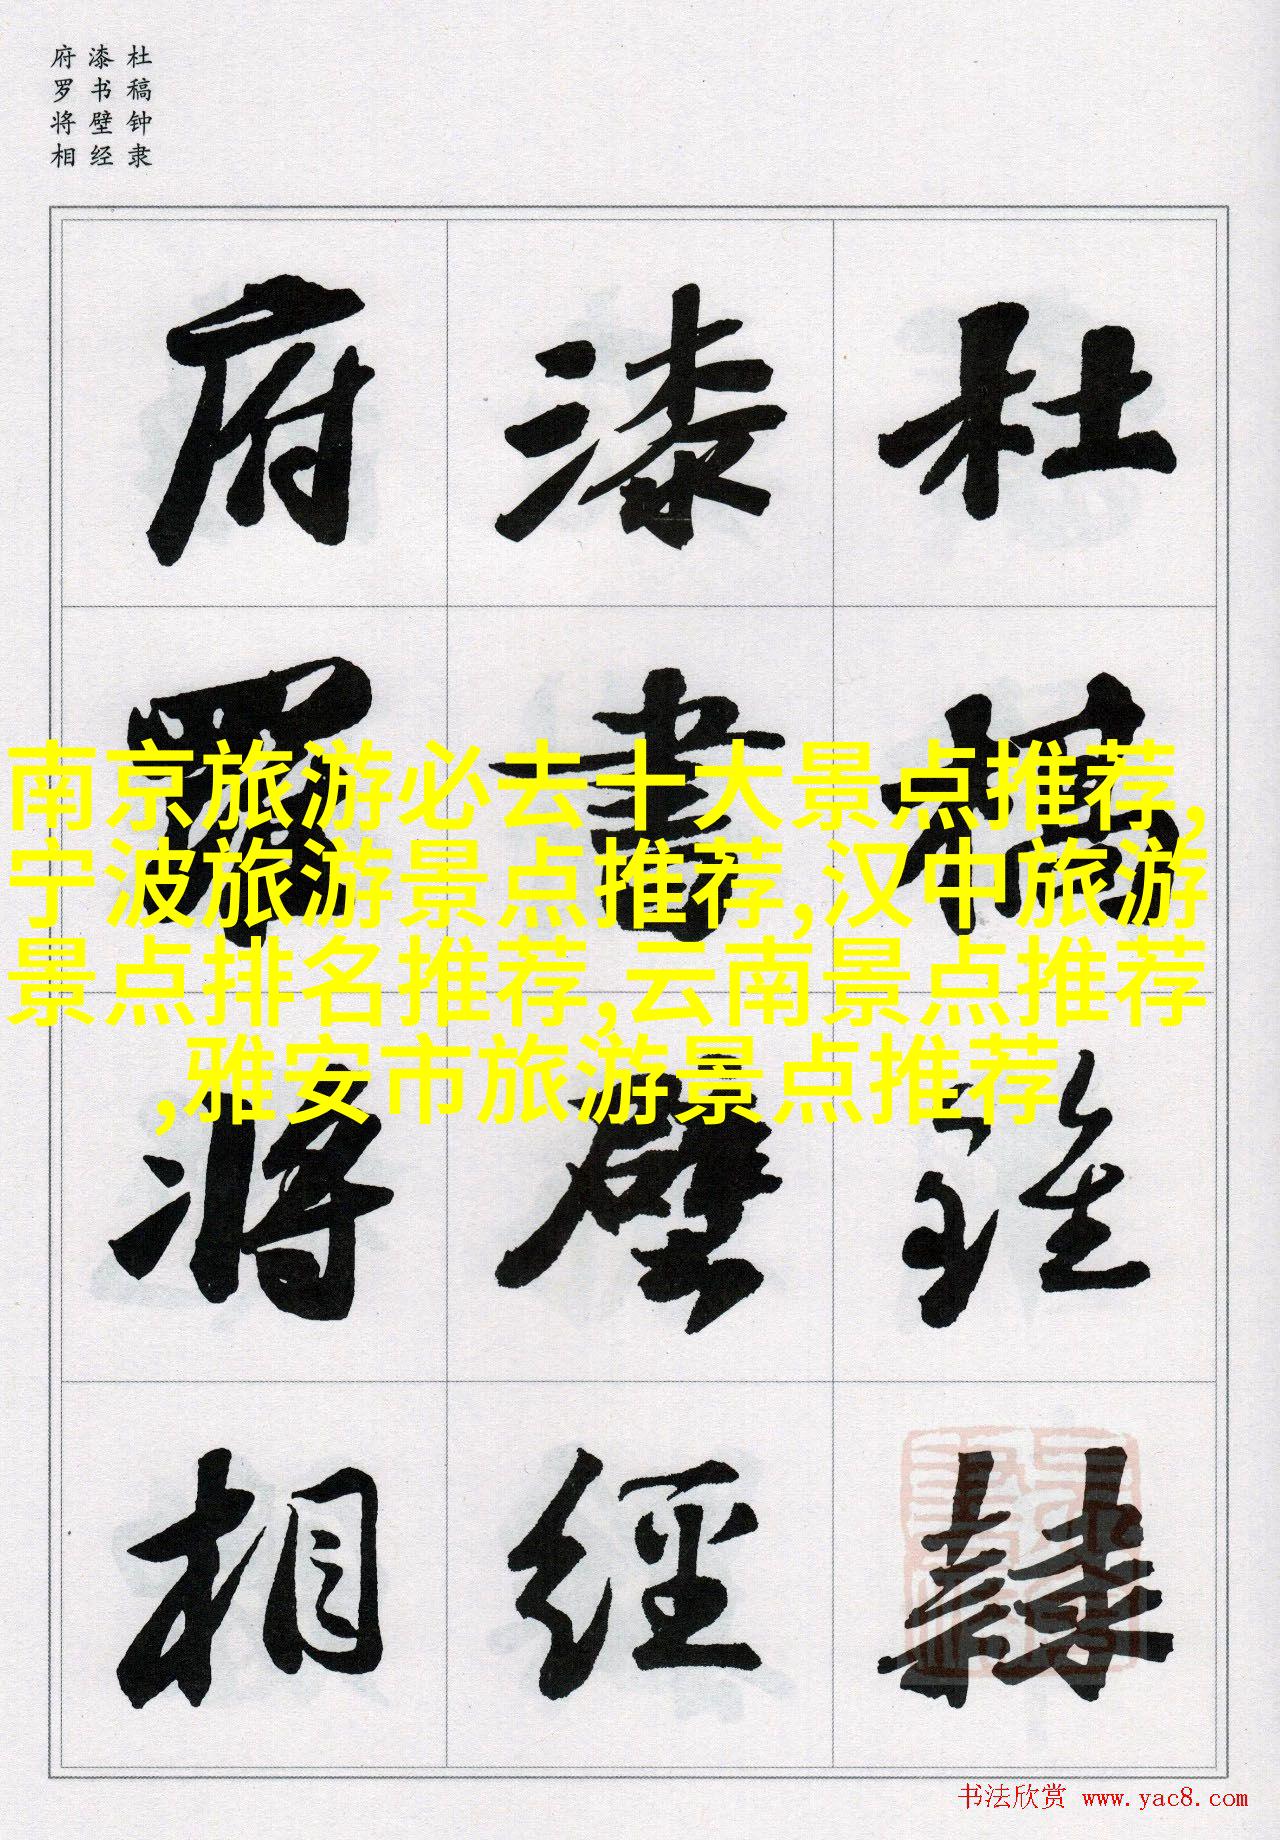 杜稿钟隶
漆书壁经
府罗将相
杜稾鍾隸
漆書壁經
府羅將相
南京旅游必去十大景点推荐,
宁波旅游景点推荐,汉中旅游
景点排名推荐,云南景点推荐
,雅安市旅游景点推荐
书法欣赏 www.yac8.com